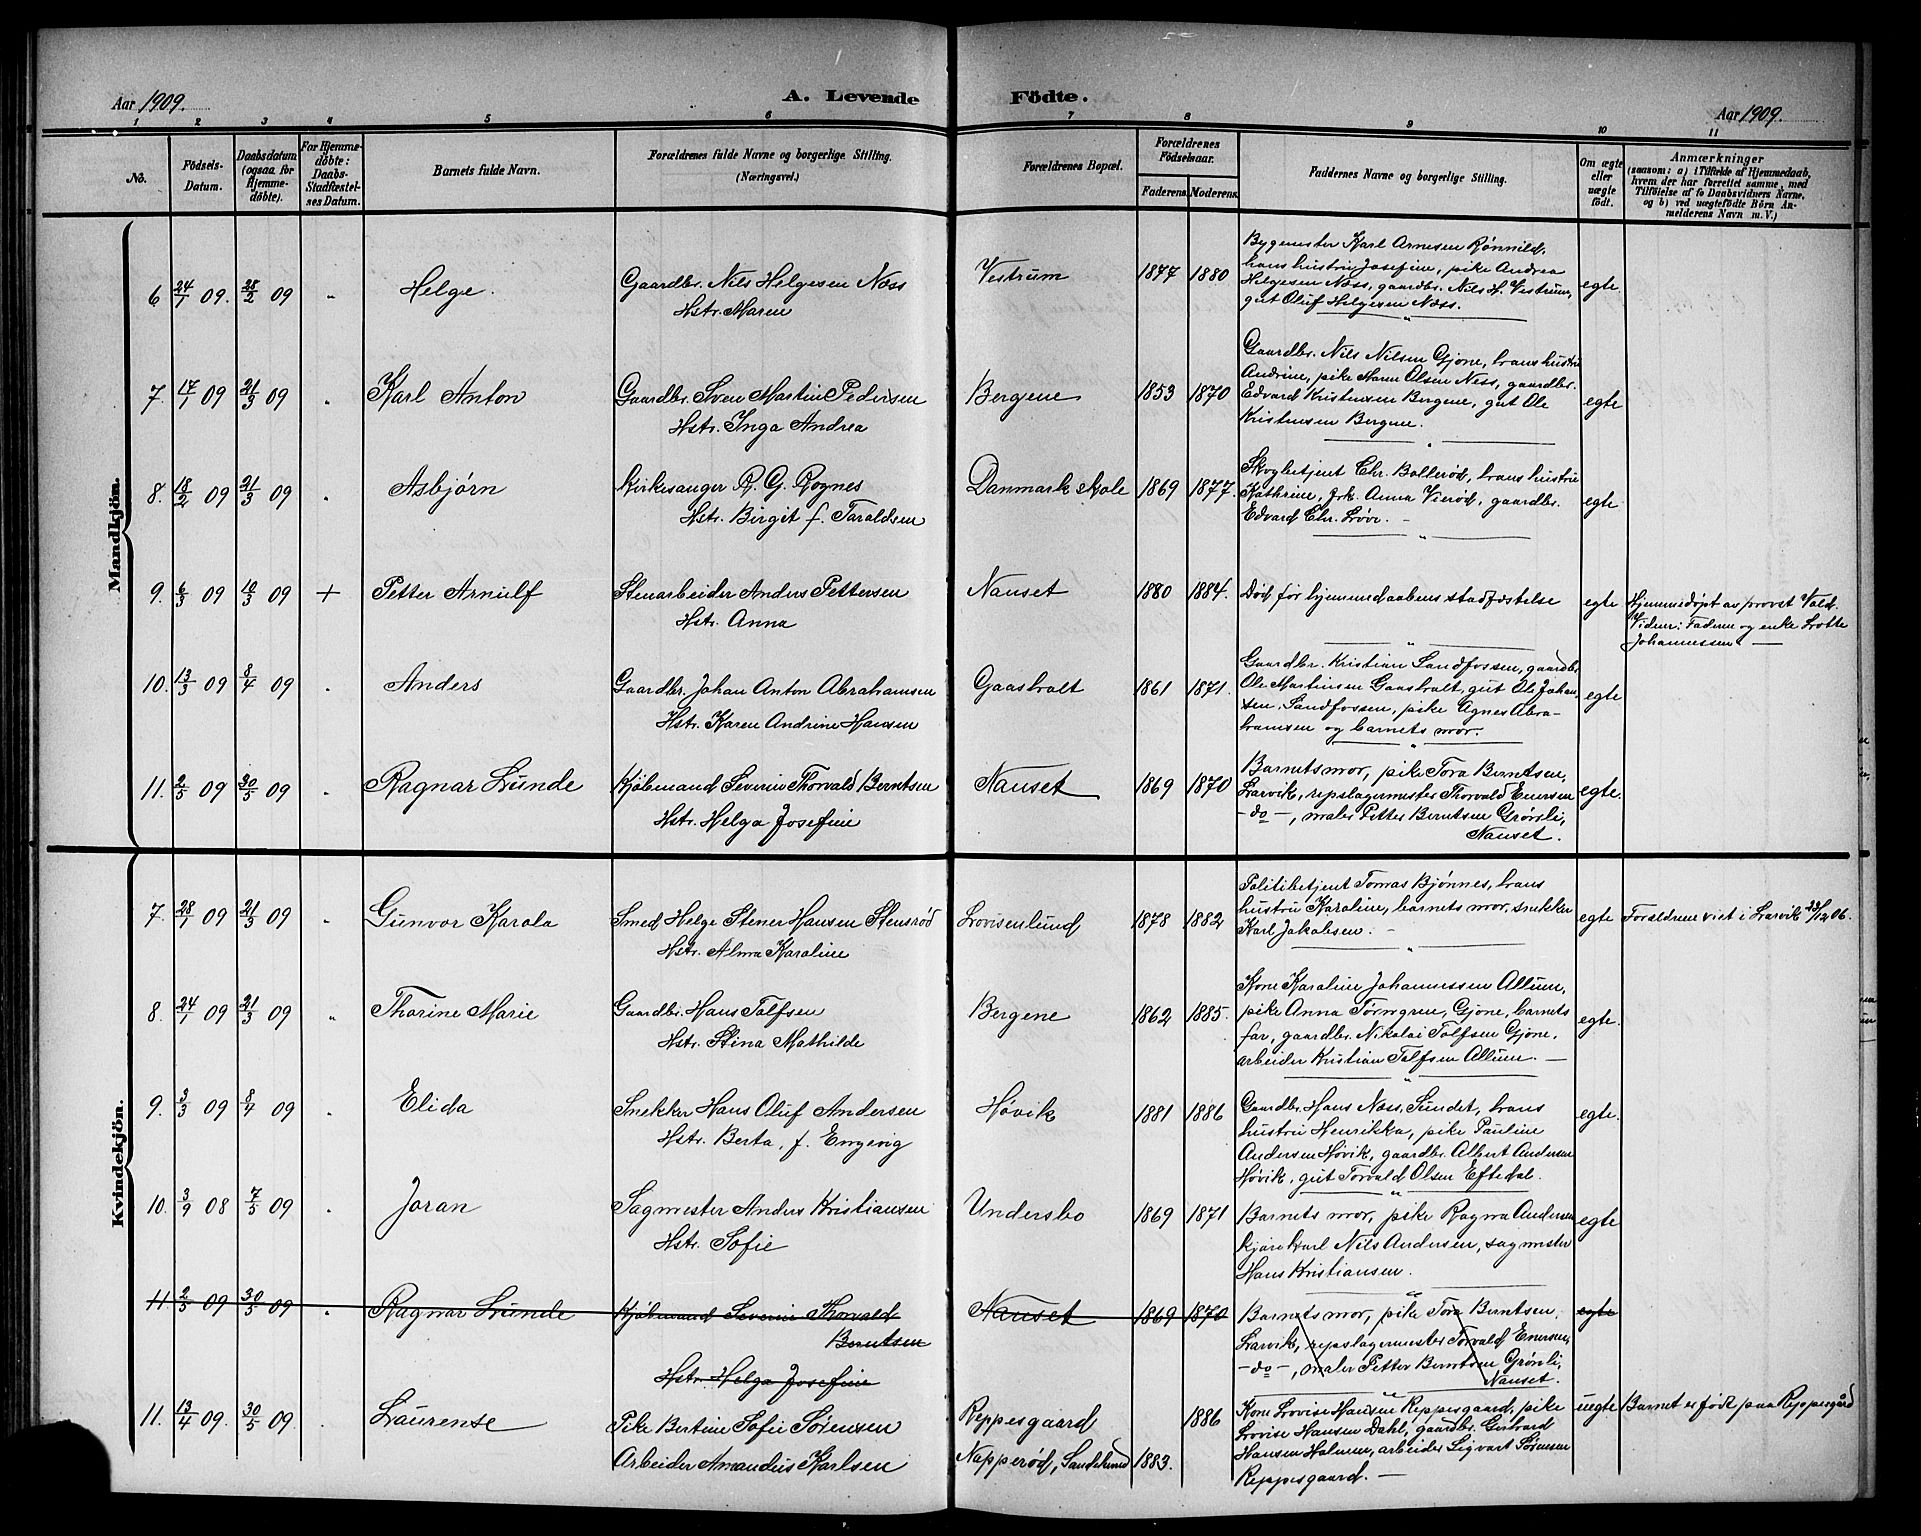 Aar 1909.
A. Levende
Födte.
Aar 1909.
1 2 3 4 5 6 7 8 9 10 11
No.
Födsels-
Datum.
Daabsdatum
(ogsaa for
Hjemme-
døbte).
For Hjemme-
döbte:
Daabs-
Stadfæstel-
ses Datum.
Barnets fulde Navn.
Forældrenes fulde Navne og borgerlige Stilling.
(Næringsvei.)
Forældrenes Bopæl.
Forældrenes
Födselsaar.
Faderens.
Moderens.
Faddernes Navne og borgerlige Stilling.
Om ægte
eller
uægte
födt.
Anmærkninger
(saasom: a) i Tilfælde af Hjemmedaab,
hvem der har forrettet samme, med
Tilföielse af to Daabsvidners Navne,
og b) ved uægtefödte Börn An-
melderens Navn m. V.)
Mandkjön.
6 24/1 09. 28/2 09 " Helge.
Gaardbr. Nils Helgesen Næss
Hstr. Maren
Vestrum 1877 1880
Bygmester Karl Arnesen Rønnild,
hans hustru Josefine, pike Andrea
Helgesen Næss, gaardbr. Nils H. Vestrum,
gut Oluf Helgesen Næss.
egte
7. 17/1 09 21/3 09 " Karl Anton
Gaardbr. Sven Martin Pedersen
Hstr. Inga Andrea
Bergene 1853 1870
Gaardbr. Nils Nilsen Gjone, hans hustru
Andrine, pike Maren Olsen Ness, gaardbr.
Edvard Kristensen Bergene, gut Ole
Kristensen Bergene.
egte
8. 18/2 09 21/3 09 " Asbjørn
Kirkesanger R. G. Rognes
Hstr. Birgit f. Taraldsen
Danmark skole 1869 1877.
Skogbetjent Chr. Bollerød, hans hustru
Kathrine, frk. Anna Vierød, gaardbr.
Edvard Chr. Løve. -
egte
9. 6/3 09 10/3 09 + Petter Arnulf
Stenarbeider Anders Pettersen
Hstr. Anna
Nanset 1880 1884.
Død før hjemmedaabens stadfæstelse
egte
Hjemmedøpt av provst Vald.
Vidner: Faderen og enke Lotte
Johannessen —
10. 13/3 09 8/4 09 " Anders
Gaardbr. Johan Anton Abrahamsen
Hstr. Karen Andrine Hansen
Gaasholt 1861 1871.
Gaardbr. Kristian Sandfossen, gaardbr.
Ole Martinsen Gaasholt, gut Ole Johan-
sen, Sandfossen, pike Agnes Abra-
hamsen og barnets mor.
egte
11. 2/5 09 30/5 09 " Ragnar Lunde
Kjøbmand Severin Thorvald Berntsen
Hstr. Helga Josefine
Nanset 1869 1870
Barnets mor, pike Tora Berntsen,
Larvik, repslagermester Thorvald Enersen
- do -, maler Petter Berntsen Grønli,
Nanset.
egte.
Kvindekjön.
7. 28/1 09 21/3 09 " Gunvor Karola
Smed Helge Stener Hansen Stensrød
Hstr. Alma Karoline
Lovisenlund 1878 1882
Politibetjent Tomas Bjønnes, hans
hustru Karoline, barnets mor, snekker
Karl Jakobsen. -
egte
Forældrene viet i Larvik 23/12 06.
8. 24/1 09 21/3 09 " Thorine Marie
Gaardbr. Hans Tolfsen
Hstr. Stina Mathilde
Bergene 1862 1885.
Kone Karoline Johannessen Allum,
pike Anna Tørngren, Gjone, barnets
far, gaardbr. Nikolai Tolfsen Gjone,
arbeider Kristian Tolfsen Allum. —
egte.
9. 3/3 09 8/4 09 " Elida
Snekker Hans Oluf Andersen
Hstr. Berta, f. Engevig
Høvik 1881 1886
Gaardbr. Hans Næss, Sundet, hans
hustru Henrikka, pike Pauline
Andersen Høvik, gaardbr. Albert Andersen
Høvik, gut Torvald Olsen Eftedal.
egte.
10. 3/9 08 7/5 09 " Joran
Sagmester Anders Kristiansen
Hstr. Sofie
Undersbo 1869 1871
Barnets mor, pike Ragna Andersen
kjørekarl Nils Andersen, sagmester
Hans Kristiansen.
egte
11 2/5 09 30/5 09 " Ragnar Lunde
Kjøbmand Severin Thorvald
Berntsen
Hstr. Helga Josefine
Nanset 1869 1870
Barnets mor, pike Tora Berntsen,
Larvik, repslagermester Torvald Enersen,
- do -, maler Petter Berntsen Grønli,
Nanset.
egte
11. 13/4 09. 30/5 09. " Laurense
Pike Bertine Sofie Sørensen
Arbeider Amandius Karlsen
Reppesgaard 1886
Napperød, Sandeherred 1883.
Kone Lovise Hansen Reppesgaard, pike
Lovise Hansen Dahl, gaardbr. Gerhard
Hansen Holmen, arbeider Sigvart Sørensen
Reppesgaard. —
uegte
Barnet er født paa Reppesgård